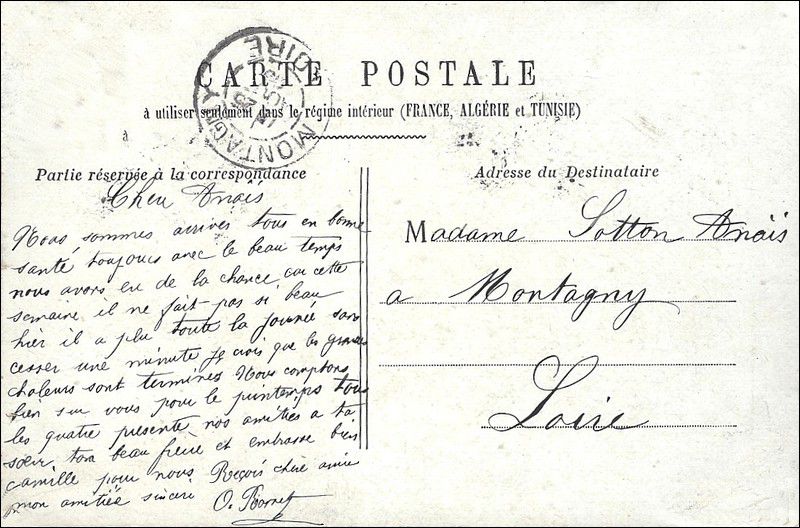 CARTE POSTALE
à utiliser seulement dans le régime intérieur (FRANCE, ALGÉRIE et TUNISIE)
à
MONTAGNY
LOIRE
Partie réservée à la correspondance
Adresse du Destinataire
Cheu Anaïs
Nous sommes arrives tous en bonne
santé toujours avec le beau temps
nous avons eu de la chance car cette
semaine il ne fait pas si beau
hier il a plu toute la journée sans
cesser une minute je crois que les grandes
chaleurs sont termines Nous comptons
bien sur vous pour le printemps tous
les quatre presente nos amitiés a ta
sœur, ton beau frère et embrasse bien
camille pour nous Reçois chère amie
mon amitiée sincere
Madame Sotton Anaïs
a Montagny
Loire